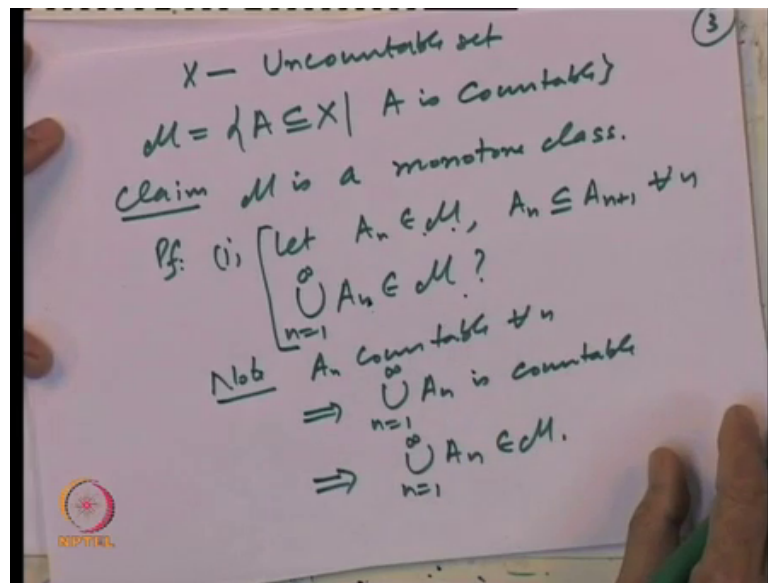 ③
X — Uncountable set
M = {A ⊆ X | A is Countable}
Claim M is a monotone class.
Pf: (i) [Let Aₙ ∈ M, Aₙ ⊆ Aₙ₊₁ ∀ n
∞⋃n=1 Aₙ ∈ M ?
Note Aₙ countable ∀ n
⟹ ∞⋃n=1 Aₙ is countable
⟹ ∞⋃n=1 Aₙ ∈ M.
NPTEL